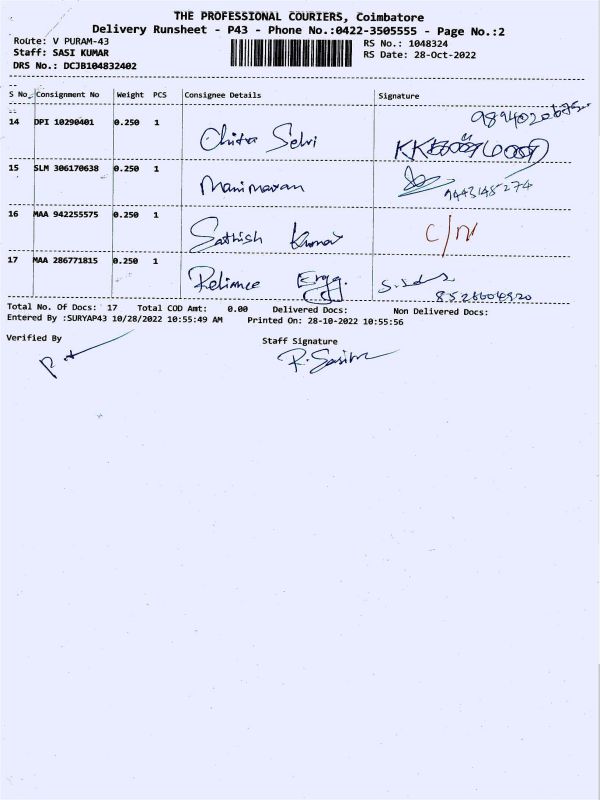 THE PROFESSIONAL COURIERS, Coimbatore
Delivery Runsheet - P43 - Phone No.:0422-3505555 - Page No.:2
Route: V PURAM-43 RS No.: 1048324
Staff: SASI KUMAR RS Date: 28-Oct-2022
DRS No.: DCJB104832402
S No. Consignment No Weight PCS Consignee Details Signature
14 DPI 10290401 0.250 1 Chitra Selvi
15 SLM 306170638 0.250 1 Manimaran 9443145274
16 MAA 942255575 0.250 1 Sathish Kumar C/N
17 MAA 286771815 0.250 1 Reliance Engg.
Total No. Of Docs: 17 Total COD Amt: 0.00 Delivered Docs: Non Delivered Docs:
Entered By :SURYAP43 10/28/2022 10:55:49 AM Printed On: 28-10-2022 10:55:56
Verified By Staff Signature